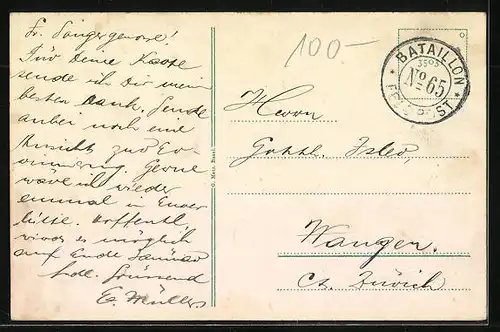 Fr. Sängergenosse!
Für Deine Karte
sende ich Dir mein
besten Dank. Sende
anbei noch eine
Ansicht zur Er-
innerung. Gerne
wäre ich wieder
einmal in Euer
hütte. Hoffentl.
wird es möglich
auf Ende Januar
frdl. grüssend
E. Müller
G. Metz, Basel.
100-
BATAILLON
No 65
FELDPOST
Herrn
Gottl. Isler,
Wangen.
Ct. Zürich